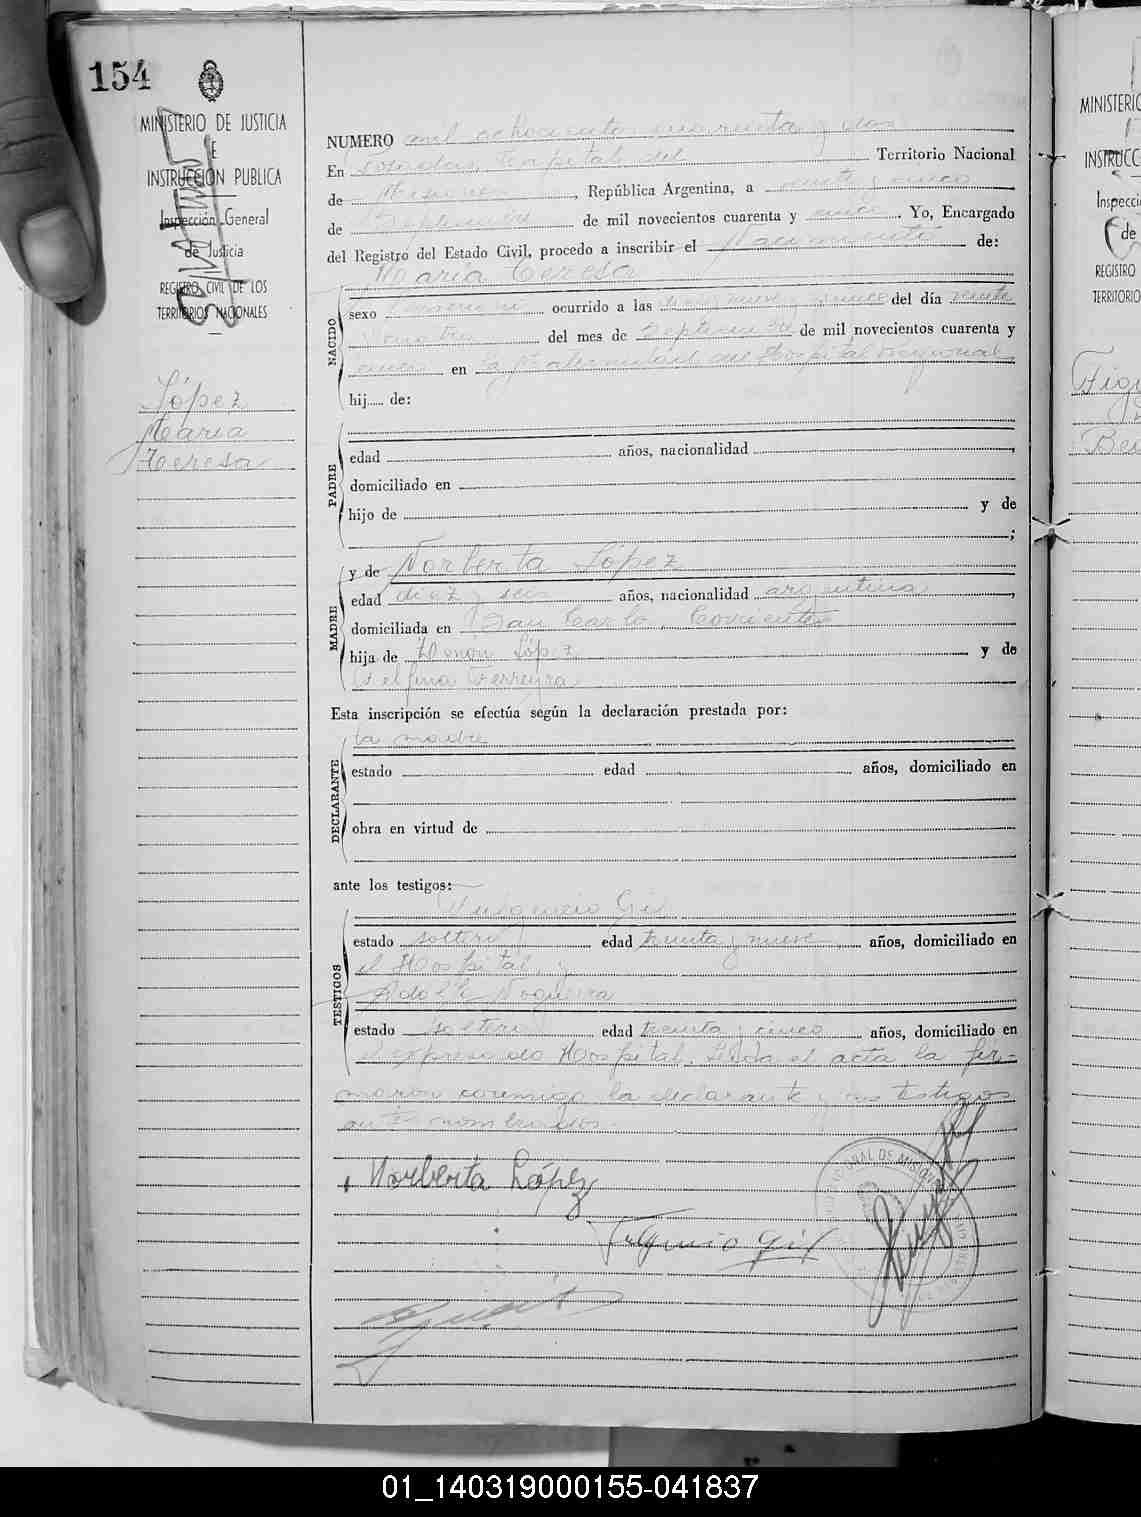 154
MINISTERIO DE JUSTICIA
E
INSTRUCCION PUBLICA
Inspección General
de Justicia
REGISTRO CIVIL DE LOS
TERRITORIOS NACIONALES
López
María
Teresa
NUMERO mil ochocientos cuarenta y dos
En Posadas, Capital del Territorio Nacional
de Misiones, República Argentina, a veinte y cinco
de Septiembre de mil novecientos cuarenta y cinco. Yo, Encargado
del Registro del Estado Civil, procedo a inscribir el Nacimiento de:
María Teresa
NACIDO
sexo femenino ocurrido a las diez y nueve y quince del día veinte
y cuatro del mes de Septiembre de mil novecientos cuarenta y
cinco en la Maternidad del Hospital Regional
hij..... de:
PADRE
edad años, nacionalidad ,
domiciliado en
hijo de y de
;
MADRE
y de Norberta López
edad diez y seis años, nacionalidad argentina,
domiciliada en San Carlo, Corrientes
hija de Zenon López y de
Delfina Ferreyra
Esta inscripción se efectúa según la declaración prestada por:
DECLARANTE
la madre
estado edad años, domiciliado en
obra en virtud de
ante los testigos:
TESTIGOS
Fulgencio Gil
estado soltero edad treinta y nueve años, domiciliado en
el Hospital, y
Adolfo Nogueira
estado soltero edad treinta y cinco años, domiciliado en
el expresado Hospital. Leída el acta la fir-
maron conmigo la declarante y los testigos
ante nombrados.
Norberta López
Fulgencio Gil
MINISTERIO
INSTRUCC
Inspecci
de
REGISTRO
TERRITORIO
01_140319000155-041837